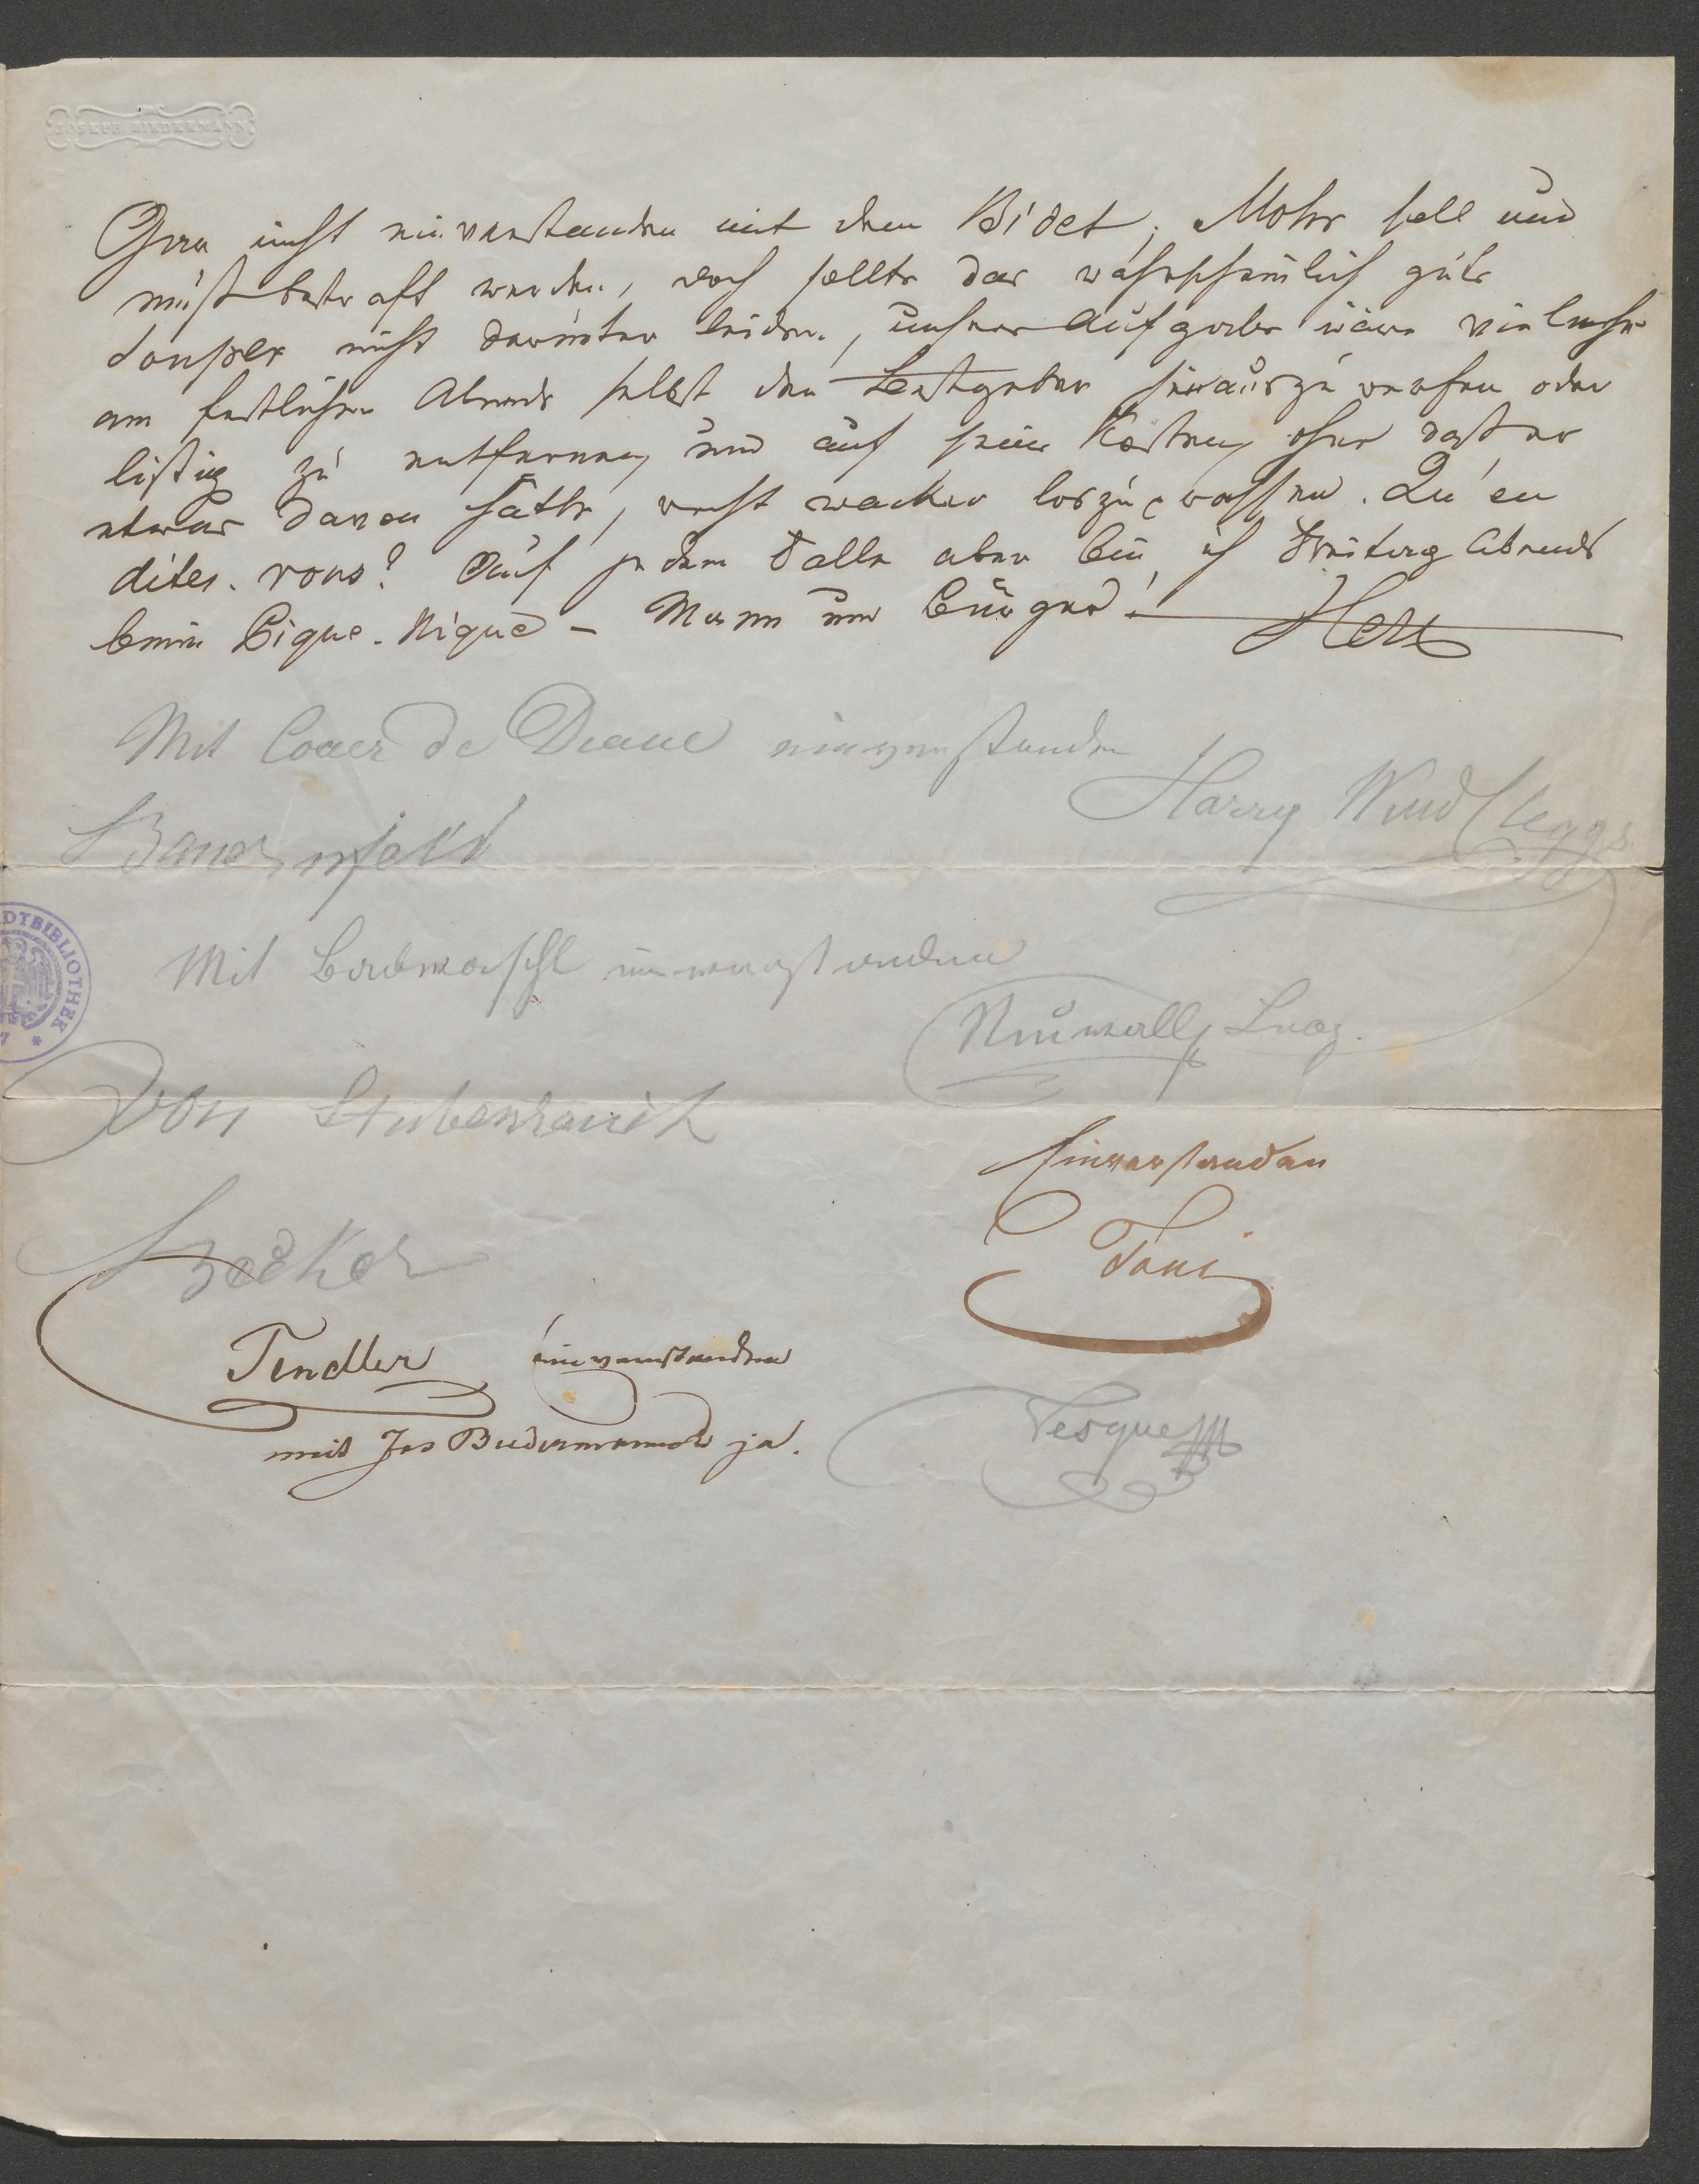 JOSEPH BIEDERMANN
Gar nicht einverstanden mit dem Bidet; Mohr soll und
muß bestraft werden, doch sollte das wahrscheinlich gute
Souper nicht darunter leiden, unsere Aufgabe wäre vielmehr
am festlichen Abende selbst den Festgeber hinauszuwerfen oder
listig zu entfernen, und auf seine Kosten, ohne daß er
etwas davon hätte, recht wacker loszu
dites-vous? Auf jeden Falle aber bin ich Freitag Abends
beim Pique-Nique – Mann und Bürger!
Mit Coeur de Diane einverstanden
Harry
Bauernfeld
DTBIBLIOTHEK
Mit einverstanden
Neuwall
von Stubenrauch
Einverstanden
Toni
Becker
Tendler einverstanden
mit Jos Biedermann ja.
Vesque